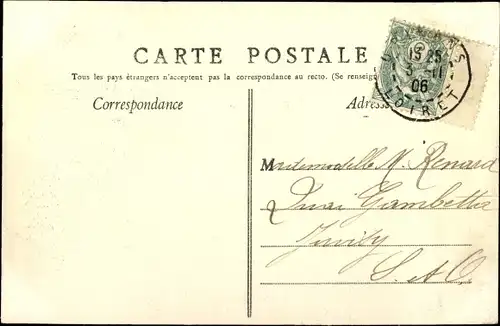 CARTE POSTALE
Tous les pays étrangers n'acceptent pas la correspondance au recto. (Se renseign
Correspondance
Adresse
15 25
3 -11
06
LOIRET
Mademoiselle M. Renard
Quai Gambetta
Juvisy
S. & O.